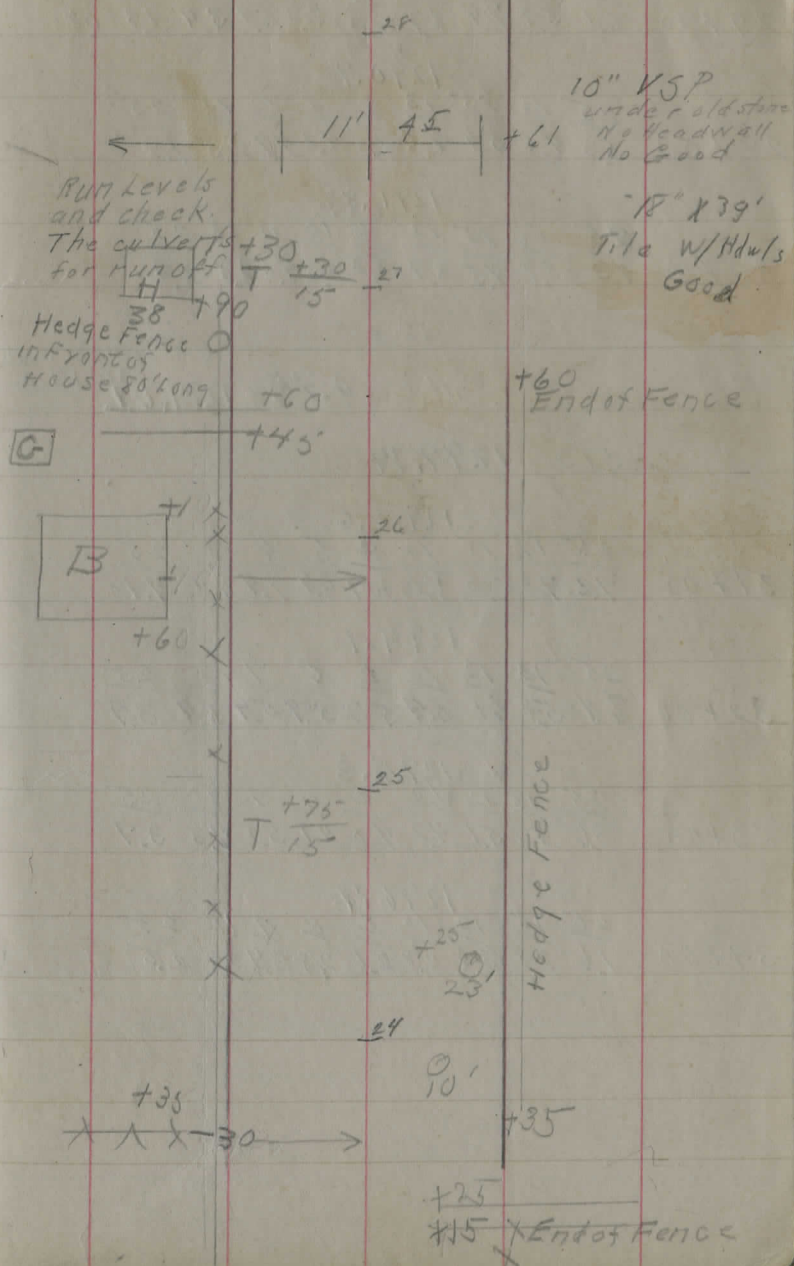 28
10" VSP
under old stone
No Headwall
No Good
11' 45
+61
Run Levels
and check
The culverts
for runoff
18" X 39'
Tile W/Hdwls
Good
+30
T +30
15
27
H
38
+90
Hedge Fence
in Front of
House 80' Long
+60
End of Fence
+60
+45
G
26
B
+60
25
T +75
15
Hedge Fence
+25
23'
24
10'
+35
30
+35
+25
+15 End of Fence